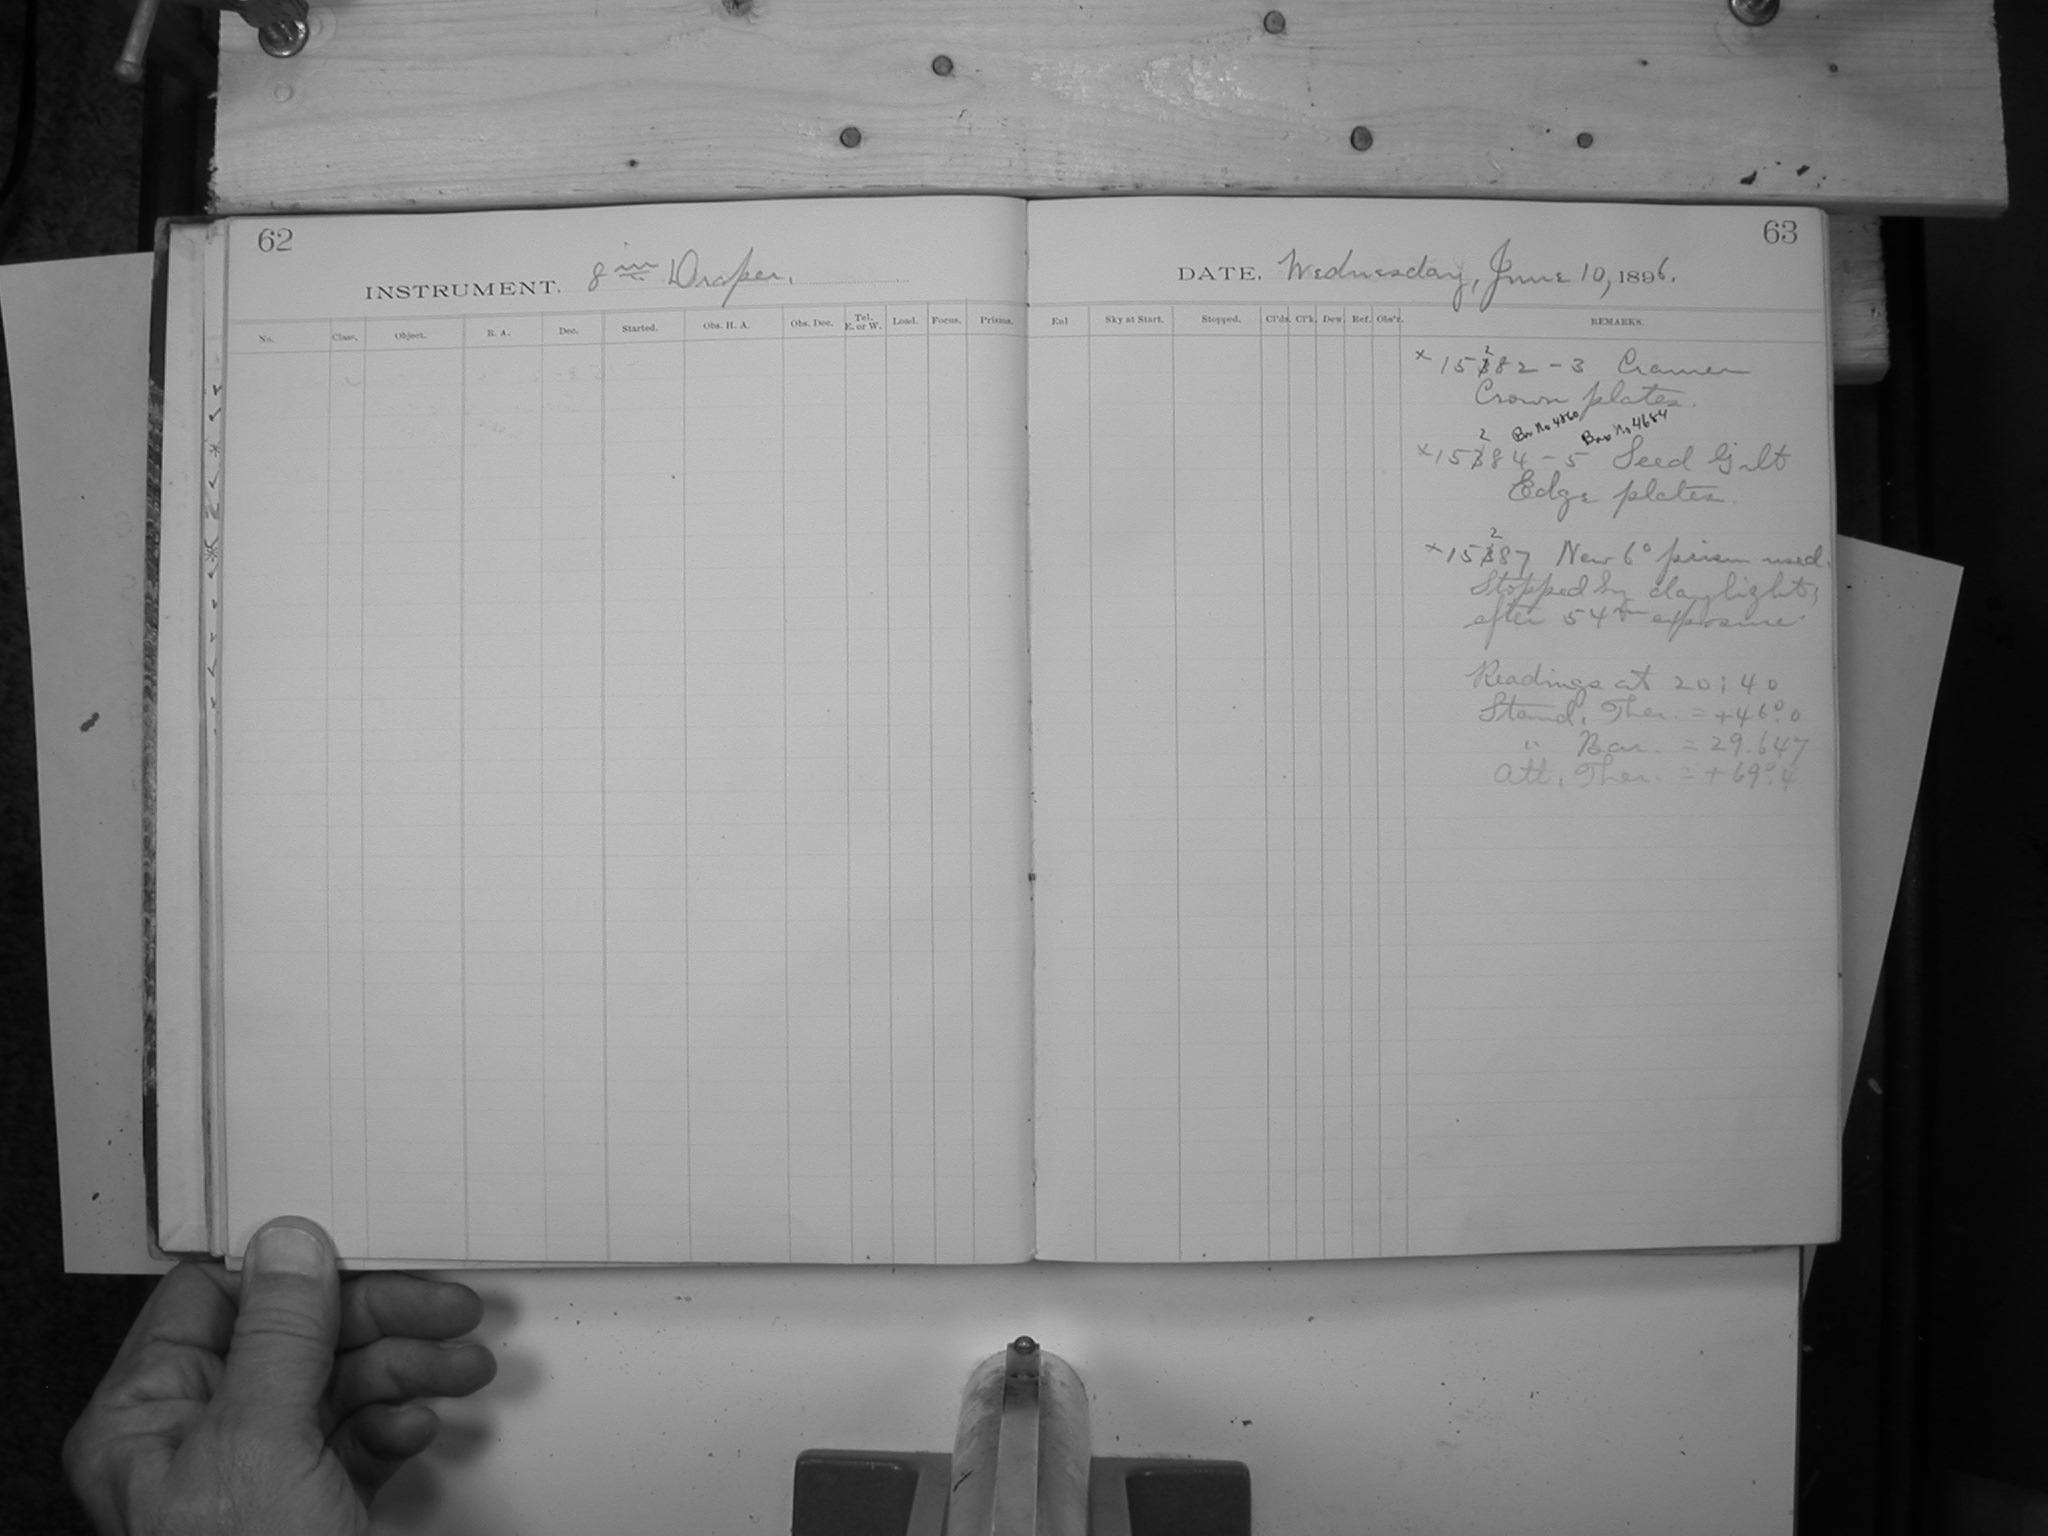 62
INSTRUMENT. 8 in Draper.
No. Class. Object. R. A. Dec. Started. Obs. H. A. Obs. Dec. Tel. E. or W. Load. Focus. Prisms.
63
DATE. Wednesday, June 10, 1896.
Enl Sky at Start. Stopped. Cl'ds. Cl'k. Dew. Ref. Obs'r. REMARKS.
2
x 15382 - 3 Cramer
Crown plates.
Box No 4860 Box No 4684
2
x 15384 - 5 Seed Gilt
Edge plates.
2
x 15387 New 6° prism used.
Stopped by daylight,
after 54m exposure.
Readings at 20:40
Stand. Ther. = +46°.0
" Bar. = 29.647
Att. Ther. = +69°.4